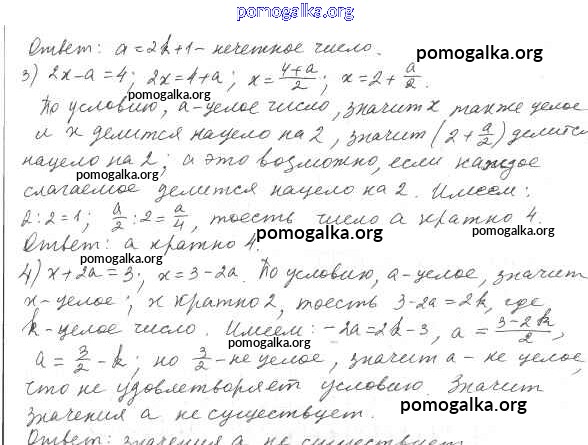 pomogalka.org
Ответ: a = 2k+1 - нечетное число.
pomogalka.org
3) 2x-a=4; 2x=4+a; x=\frac{4+a}{2}; x=2+\frac{a}{2}.
pomogalka.org
По условию, a-целое число, значит x также целое
и x делится нацело на 2, значит (2+\frac{a}{2}) делится
нацело на 2; а это возможно, если каждое
pomogalka.org
слагаемое делится нацело на 2. Имеем:
2:2=1; \frac{a}{2}:2=\frac{a}{4}, тоесть число a кратно 4.
pomogalka.org pomogalka.org
Ответ: a кратно 4.
pomogalka.org
4) x+2a=3; x=3-2a. По условию, a-целое, значит
x-целое; x кратно 2, тоесть 3-2a=2k, где
k-целое число. Имеем: -2a=2k-3, a=\frac{3-2k}{2},
pomogalka.org
a=\frac{3}{2}-k; но \frac{3}{2}-не целое, значит a-не целое,
что не удовлетворяет условию. Значит
значения a не существует.
pomogalka.org
Ответ: значения a не существует